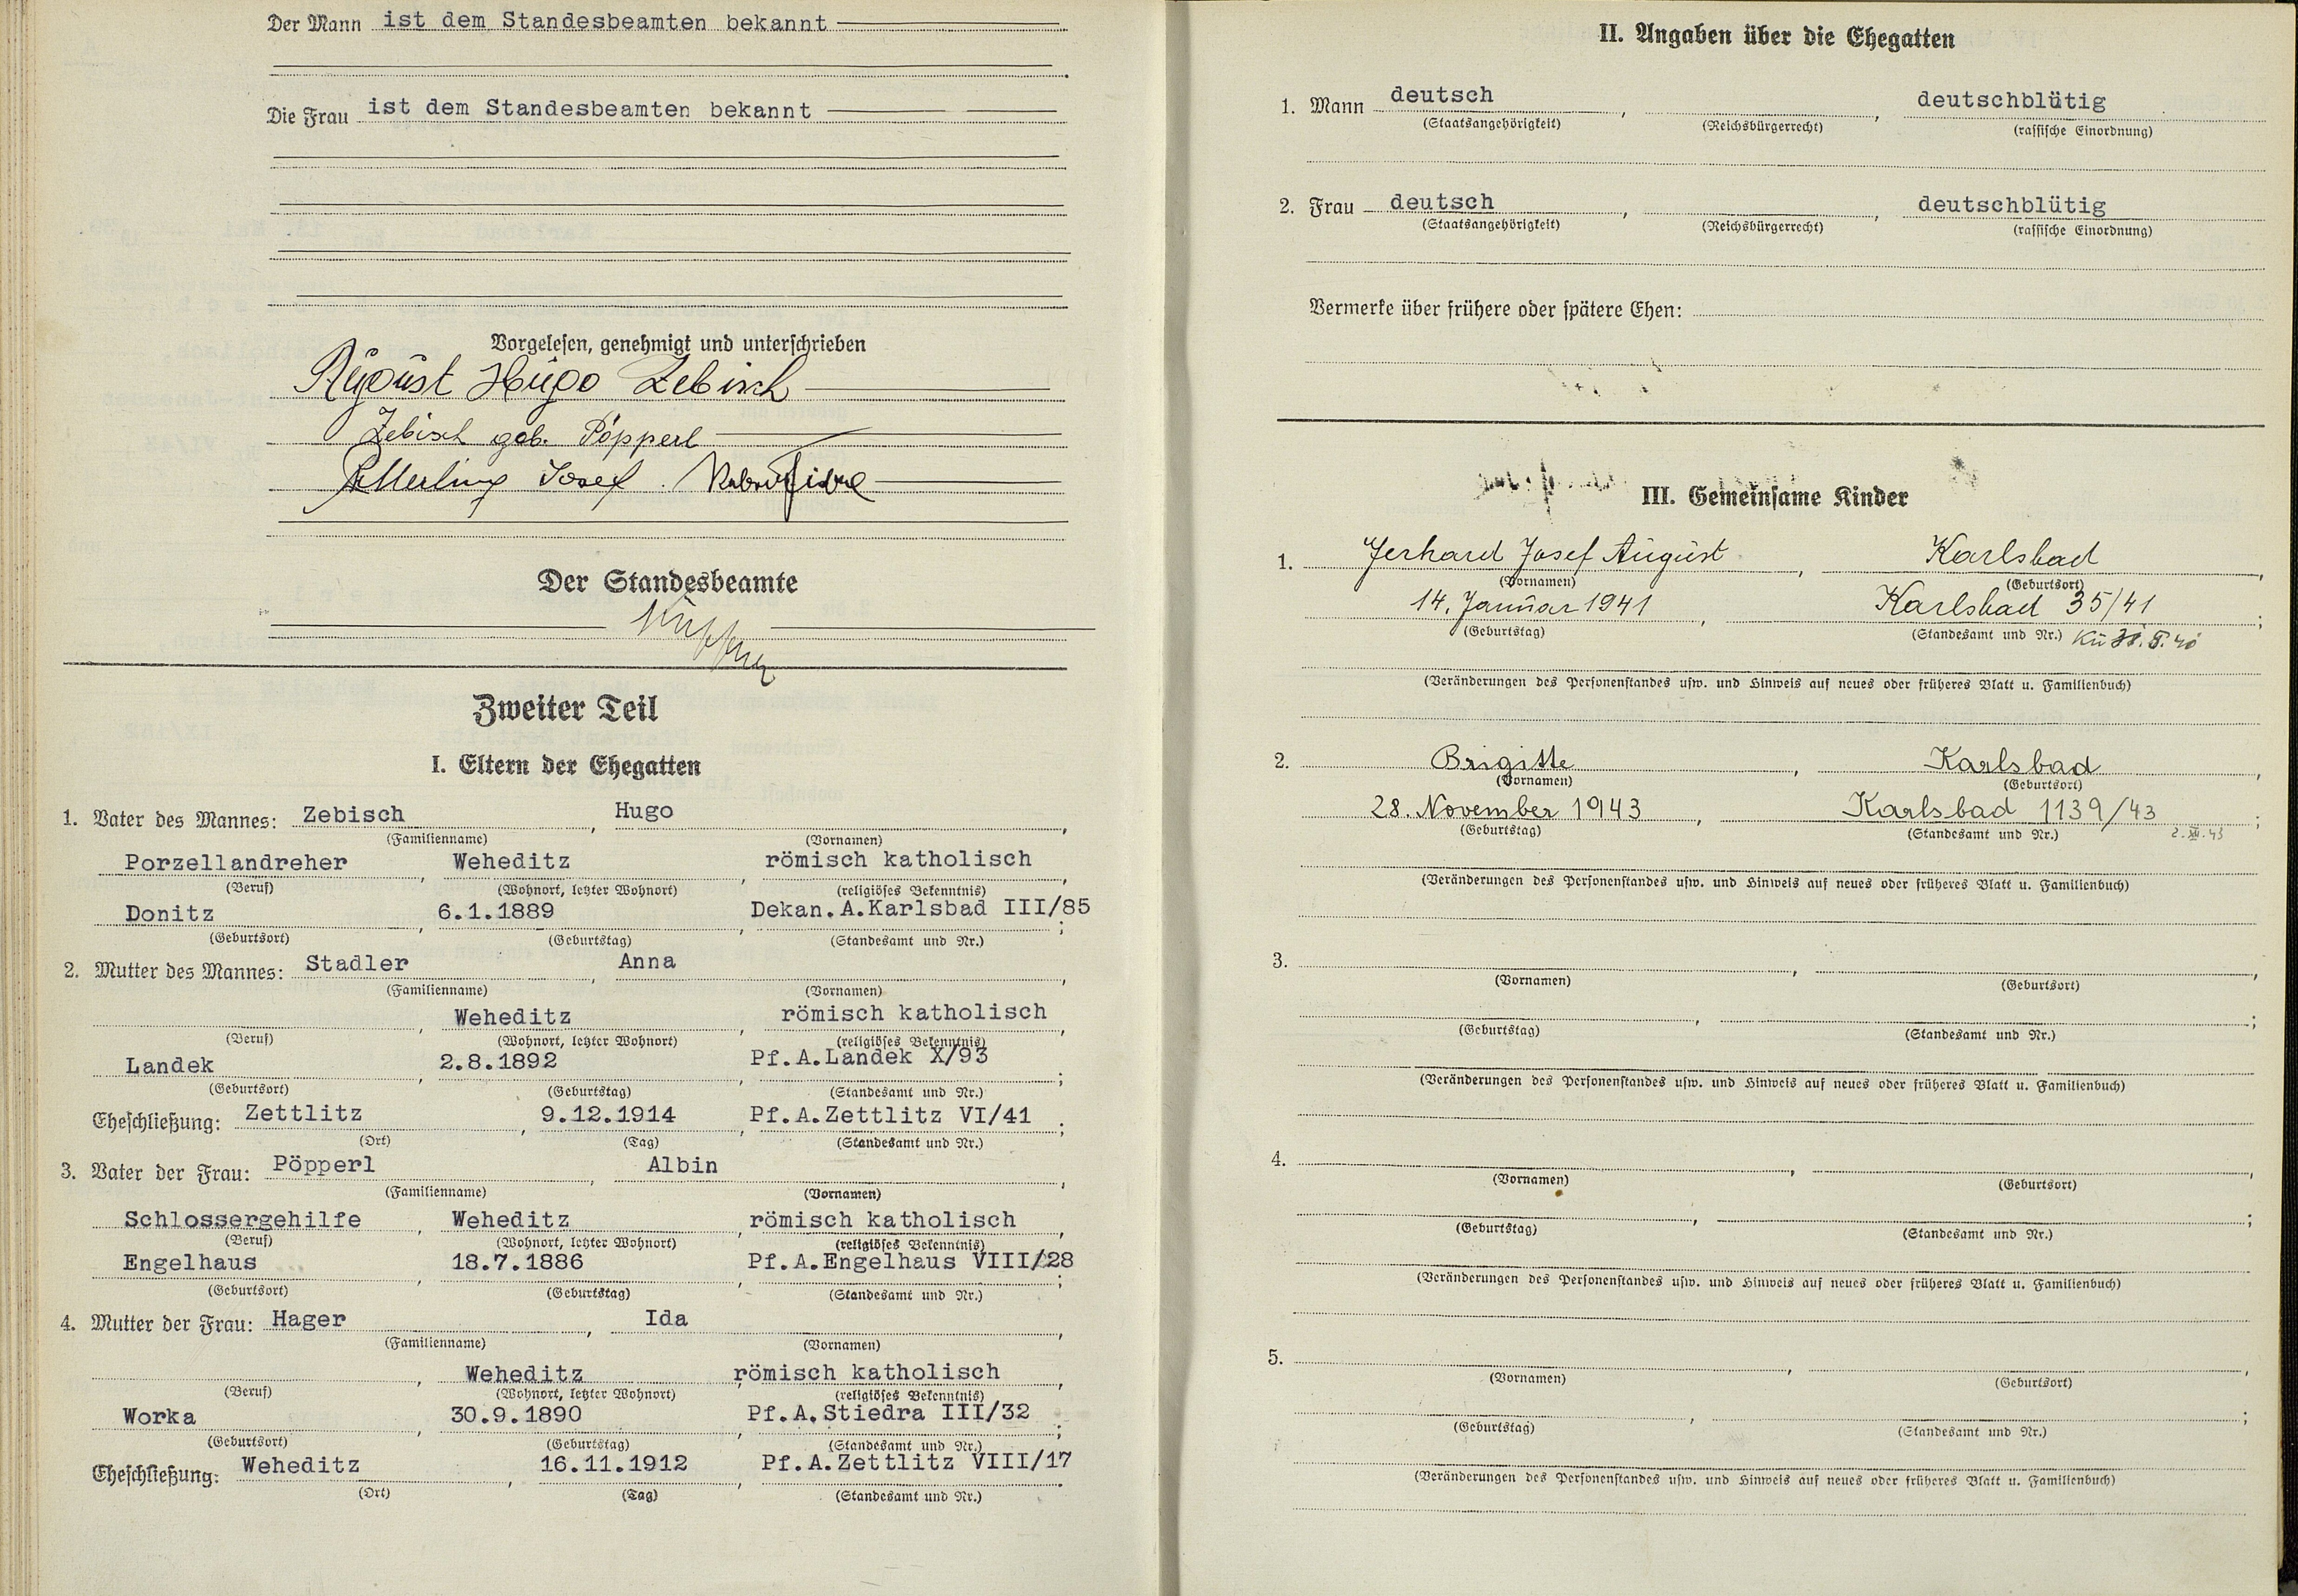 Der Mann ist dem Standesbeamten bekannt
Die Frau ist dem Standesbeamten bekannt
Vorgelesen, genehmigt und unterschrieben
August Hugo Zebisch
Zebisch geb. Pöpperl
Josef
Der Standesbeamte
Zweiter Teil
I. Eltern der Ehegatten
1. Vater des Mannes: Zebisch, Hugo,
(Familienname) (Vornamen)
Porzellandreher, Weheditz, römisch katholisch,
(Beruf) (Wohnort, letzter Wohnort) (religiöses Bekenntnis)
Donitz, 6.1.1889, Dekan.A.Karlsbad III/85;
(Geburtsort) (Geburtstag) (Standesamt und Nr.)
2. Mutter des Mannes: Stadler, Anna,
(Familienname) (Vornamen)
, Weheditz, römisch katholisch,
(Beruf) (Wohnort, letzter Wohnort) (religiöses Bekenntnis)
Landek, 2.8.1892, Pf.A.Landek X/93;
(Geburtsort) (Geburtstag) (Standesamt und Nr.)
Eheschließung: Zettlitz, 9.12.1914, Pf.A.Zettlitz VI/41;
(Ort) (Tag) (Standesamt und Nr.)
3. Vater der Frau: Pöpperl, Albin,
(Familienname) (Vornamen)
Schlossergehilfe, Weheditz, römisch katholisch,
(Beruf) (Wohnort, letzter Wohnort) (religiöses Bekenntnis)
Engelhaus, 18.7.1886, Pf.A.Engelhaus VIII/28;
(Geburtsort) (Geburtstag) (Standesamt und Nr.)
4. Mutter der Frau: Hager, Ida,
(Familienname) (Vornamen)
, Weheditz, römisch katholisch,
(Beruf) (Wohnort, letzter Wohnort) (religiöses Bekenntnis)
Worka, 30.9.1890, Pf.A.Stiedra III/32;
(Geburtsort) (Geburtstag) (Standesamt und Nr.)
Eheschließung: Weheditz, 16.11.1912, Pf.A.Zettlitz VIII/17
(Ort) (Tag) (Standesamt und Nr.)
II. Angaben über die Ehegatten
1. Mann deutsch, , deutschblütig
(Staatsangehörigkeit) (Reichsbürgerrecht) (rassische Einordnung)
2. Frau deutsch, , deutschblütig
(Staatsangehörigkeit) (Reichsbürgerrecht) (rassische Einordnung)
Vermerke über frühere oder spätere Ehen:
III. Gemeinsame Kinder
1. Gerhard Josef August, Karlsbad,
(Vornamen) (Geburtsort)
14. Januar 1941, Karlsbad 35/41;
(Geburtstag) (Standesamt und Nr.)
(Veränderungen des Personenstandes usw. und Hinweis auf neues oder früheres Blatt u. Familienbuch)
2. Brigitte, Karlsbad,
(Vornamen) (Geburtsort)
28. November 1943, Karlsbad 1139/43;
(Geburtstag) (Standesamt und Nr.) 2.XII.43
(Veränderungen des Personenstandes usw. und Hinweis auf neues oder früheres Blatt u. Familienbuch)
3. , ,
(Vornamen) (Geburtsort)
, ;
(Geburtstag) (Standesamt und Nr.)
(Veränderungen des Personenstandes usw. und Hinweis auf neues oder früheres Blatt u. Familienbuch)
4. , ,
(Vornamen) (Geburtsort)
, ;
(Geburtstag) (Standesamt und Nr.)
(Veränderungen des Personenstandes usw. und Hinweis auf neues oder früheres Blatt u. Familienbuch)
5. , ,
(Vornamen) (Geburtsort)
, ;
(Geburtstag) (Standesamt und Nr.)
(Veränderungen des Personenstandes usw. und Hinweis auf neues oder früheres Blatt u. Familienbuch)